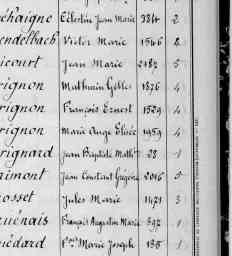 éhaigne Célestin Jean Marie 384 2
endelbach Victor Marie 1546 8
icourt Jean Marie 2482 5
rignon Mathurin Gilles 1826 4
rignon François Ernest 1529 4
rignon Marie Ange Elisée 1959 4
rignard Jean Baptiste Math. 28 1
rimont Jean Constant Grégoire 2016 5
rosset Jules Marie 1421 3
ruénais François Augustin Marie 592 1
uédard Marie Joseph 135 1